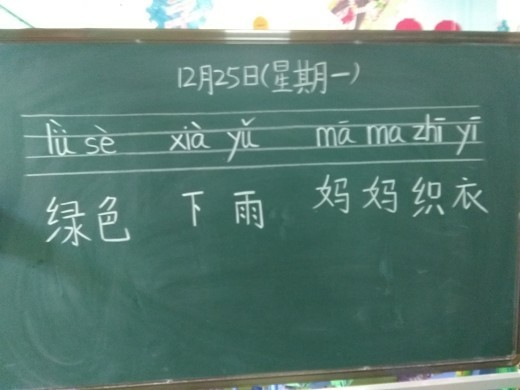 12月25日(星期一)
lǜ sè xià yǔ mā ma zhī yī
绿色 下雨 妈妈织衣